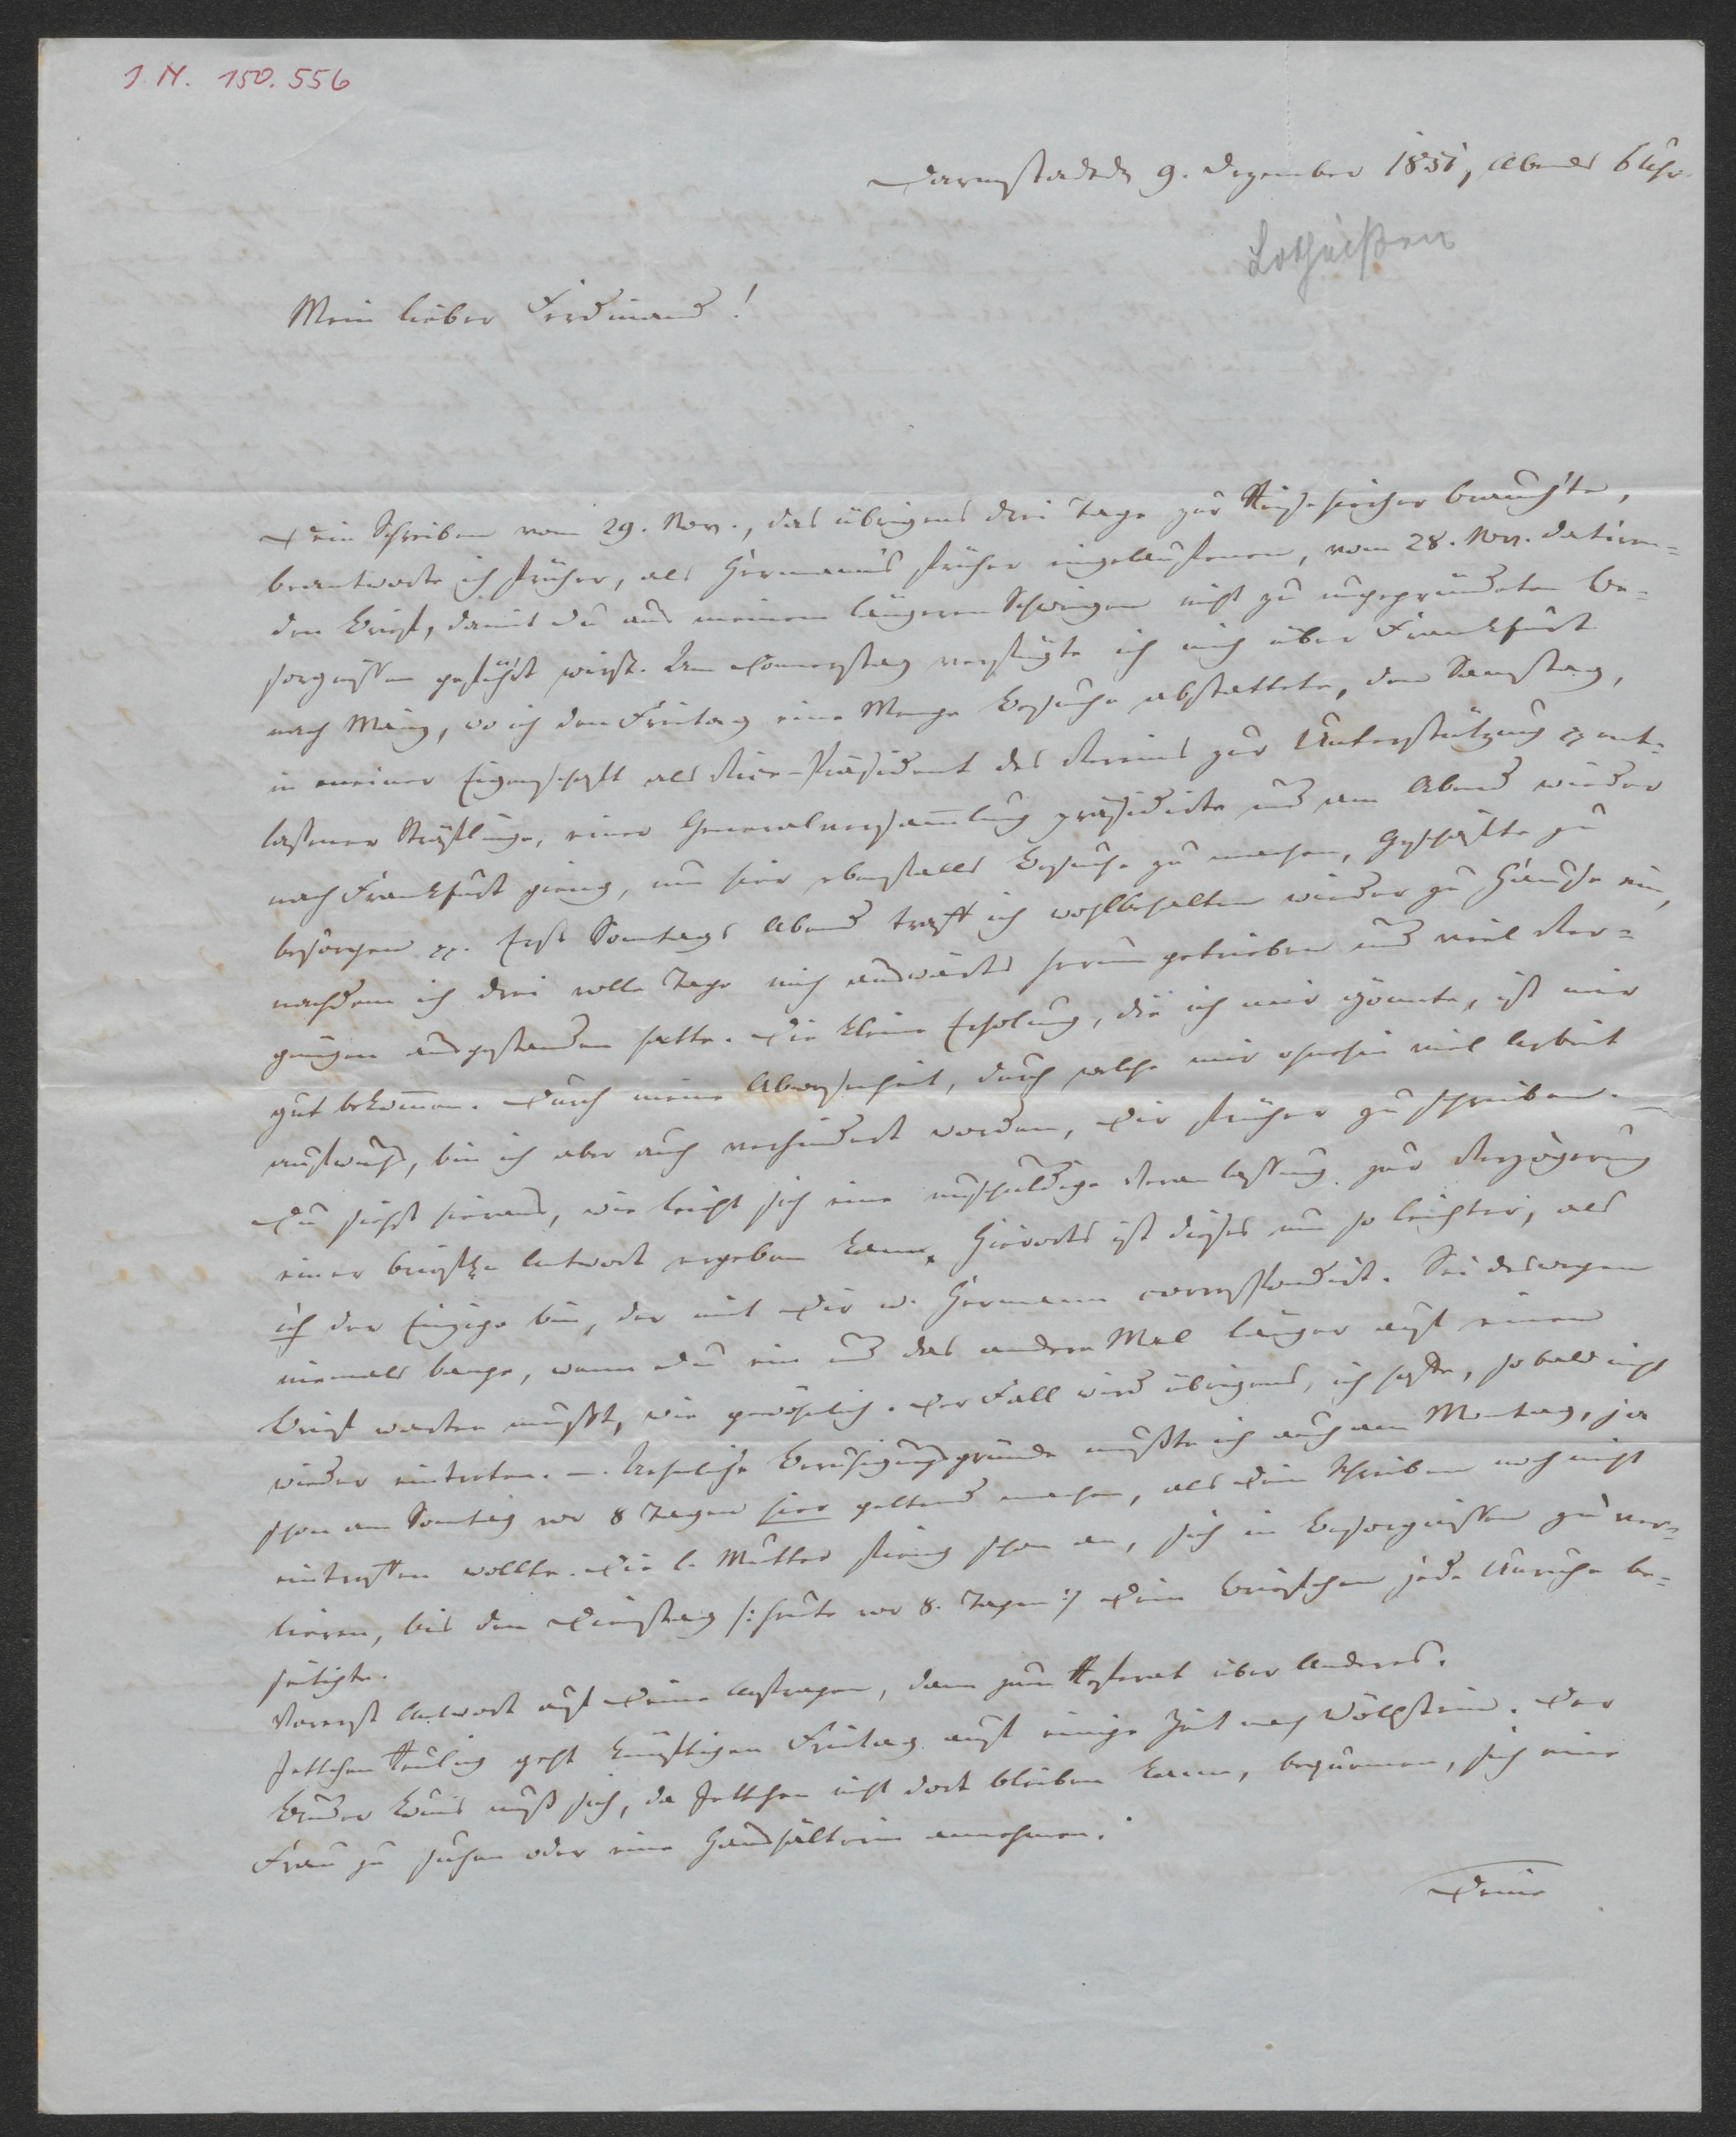 J. N. 150.556
Darmstadt d. 9. Dezember 1851, Abends 6 Uhr.
Lotheißen
Mein lieber Ferdinand!
Dein Schreiben vom 29. Nov., das übrigens drei Tage zur Reise hierher brauchte,
beantworte ich früher, als Hermann's früher eingelaufenen, vom 28. Nov. datiren=
den Brief, damit Du aus meinem längeren Schweigen nicht zu ungegründeten Be=
sorgnissen geführt wirst. Am Donnerstag verfügte ich mich über Frankfurt
nach Mainz, wo ich den Freitag eine Menge Besuche abstattete, den Samstag,
in meiner Eigenschaft als Vice-Präsident des Vereins zur Unterstützung pp ent=
lassener Sträflinge, einer Generalversammlung präsidirte und am Abend wieder
nach Frankfurt gieng, um hier ebenfalls Besuche zu machen, Geschäfte zu
besorgen pp. Erst Sonntags Abend traff ich wohlbehalten wieder zu Hause ein,
nachdem ich drei volle Tage mich auswärts herum getrieben und viel Ver=
gnügen ausgestanden hatte. Die kleine Erholung, die ich mir gönnte, ist mir
gut bekommen. Durch meine Abwesenheit, durch welche mir ohnehin viel Arbeit
aufwuchs, bin ich aber auch verhindert worden, Dir früher zu schreiben.
Du siehst hieraus, wie leicht sich eine unschuldige Veranlassung zur Verzögerung
einer briefl. Antwort ergeben kann. Hierorts ist dieses um so leichter, als
ich der Einzige bin, der mit Dir u. Hermann correspondirt. Sei deswegen
niemals bange, wenn Du ein und das andere Mal länger auf einen
Brief warten mußt, wie gewöhnlich. Der Fall wird übrigens, ich hoffe, so bald nicht
wieder eintreten. –. Aehnliche Beruhigungsgründe mußte ich auch am Montag, ja
schon am Sonntag vor 8 Tagen hier geltend machen, als Dein Schreiben noch nicht
eintreffen wollte. Die l. Mutter fieng schon an, sich in Besorgnissen zu ver=
lieren, bis den Dienstag /: heute vor 8. Tagen :/ Dein Briefchen jede Unruhe be=
seitigte.
Vorerst Antwort auf Deine Anfragen, dann zum Referat über Anderes.
Jettchen geht künftigen Freitag auf einige Zeit nach Wöllstein. Der
Bruder Louis muß sich, da Jettchen nicht dort bleiben kann, bequemen, sich eine
Frau zu suchen oder eine Haushälterin annehmen.
Deine